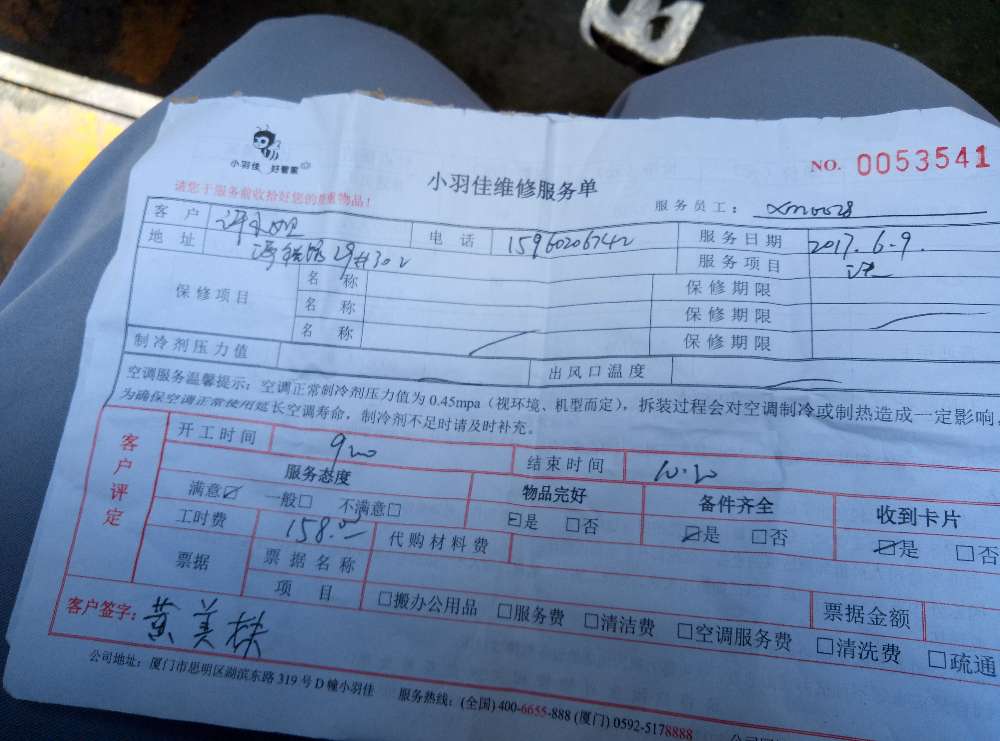 小羽佳 好管家
NO. 0053541
请您于服务前收拾好您的贵重物品!
小羽佳维修服务单
服务员工: xm0028
客户 电话 15960206742 服务日期 2017.6.9.
地址 29#302 服务项目
保修项目 名称 保修期限
名称 保修期限
名称 保修期限
制冷剂压力值 出风口温度
空调服务温馨提示:空调正常制冷剂压力值为 0.45mpa(视环境、机型而定),拆装过程会对空调制冷或制热造成一定影响,
为确保空调正常使用延长空调寿命,制冷剂不足时请及时补充。
客户评定
开工时间 920 结束时间 10.20
服务态度 物品完好 备件齐全 收到卡片
满意☑ 一般□ 不满意□ ☑是 □否 ☑是 □否 ☑是 □否
工时费 158.00 代购材料费
票据 票据名称
项目 □搬办公用品 □服务费 □清洁费 □空调服务费 □清洗费 □疏通
票据金额
客户签字: 黄美
公司地址:厦门市思明区湖滨东路 319 号 D 幢小羽佳 服务热线:(全国) 400-6655-888 (厦门) 0592-5178888